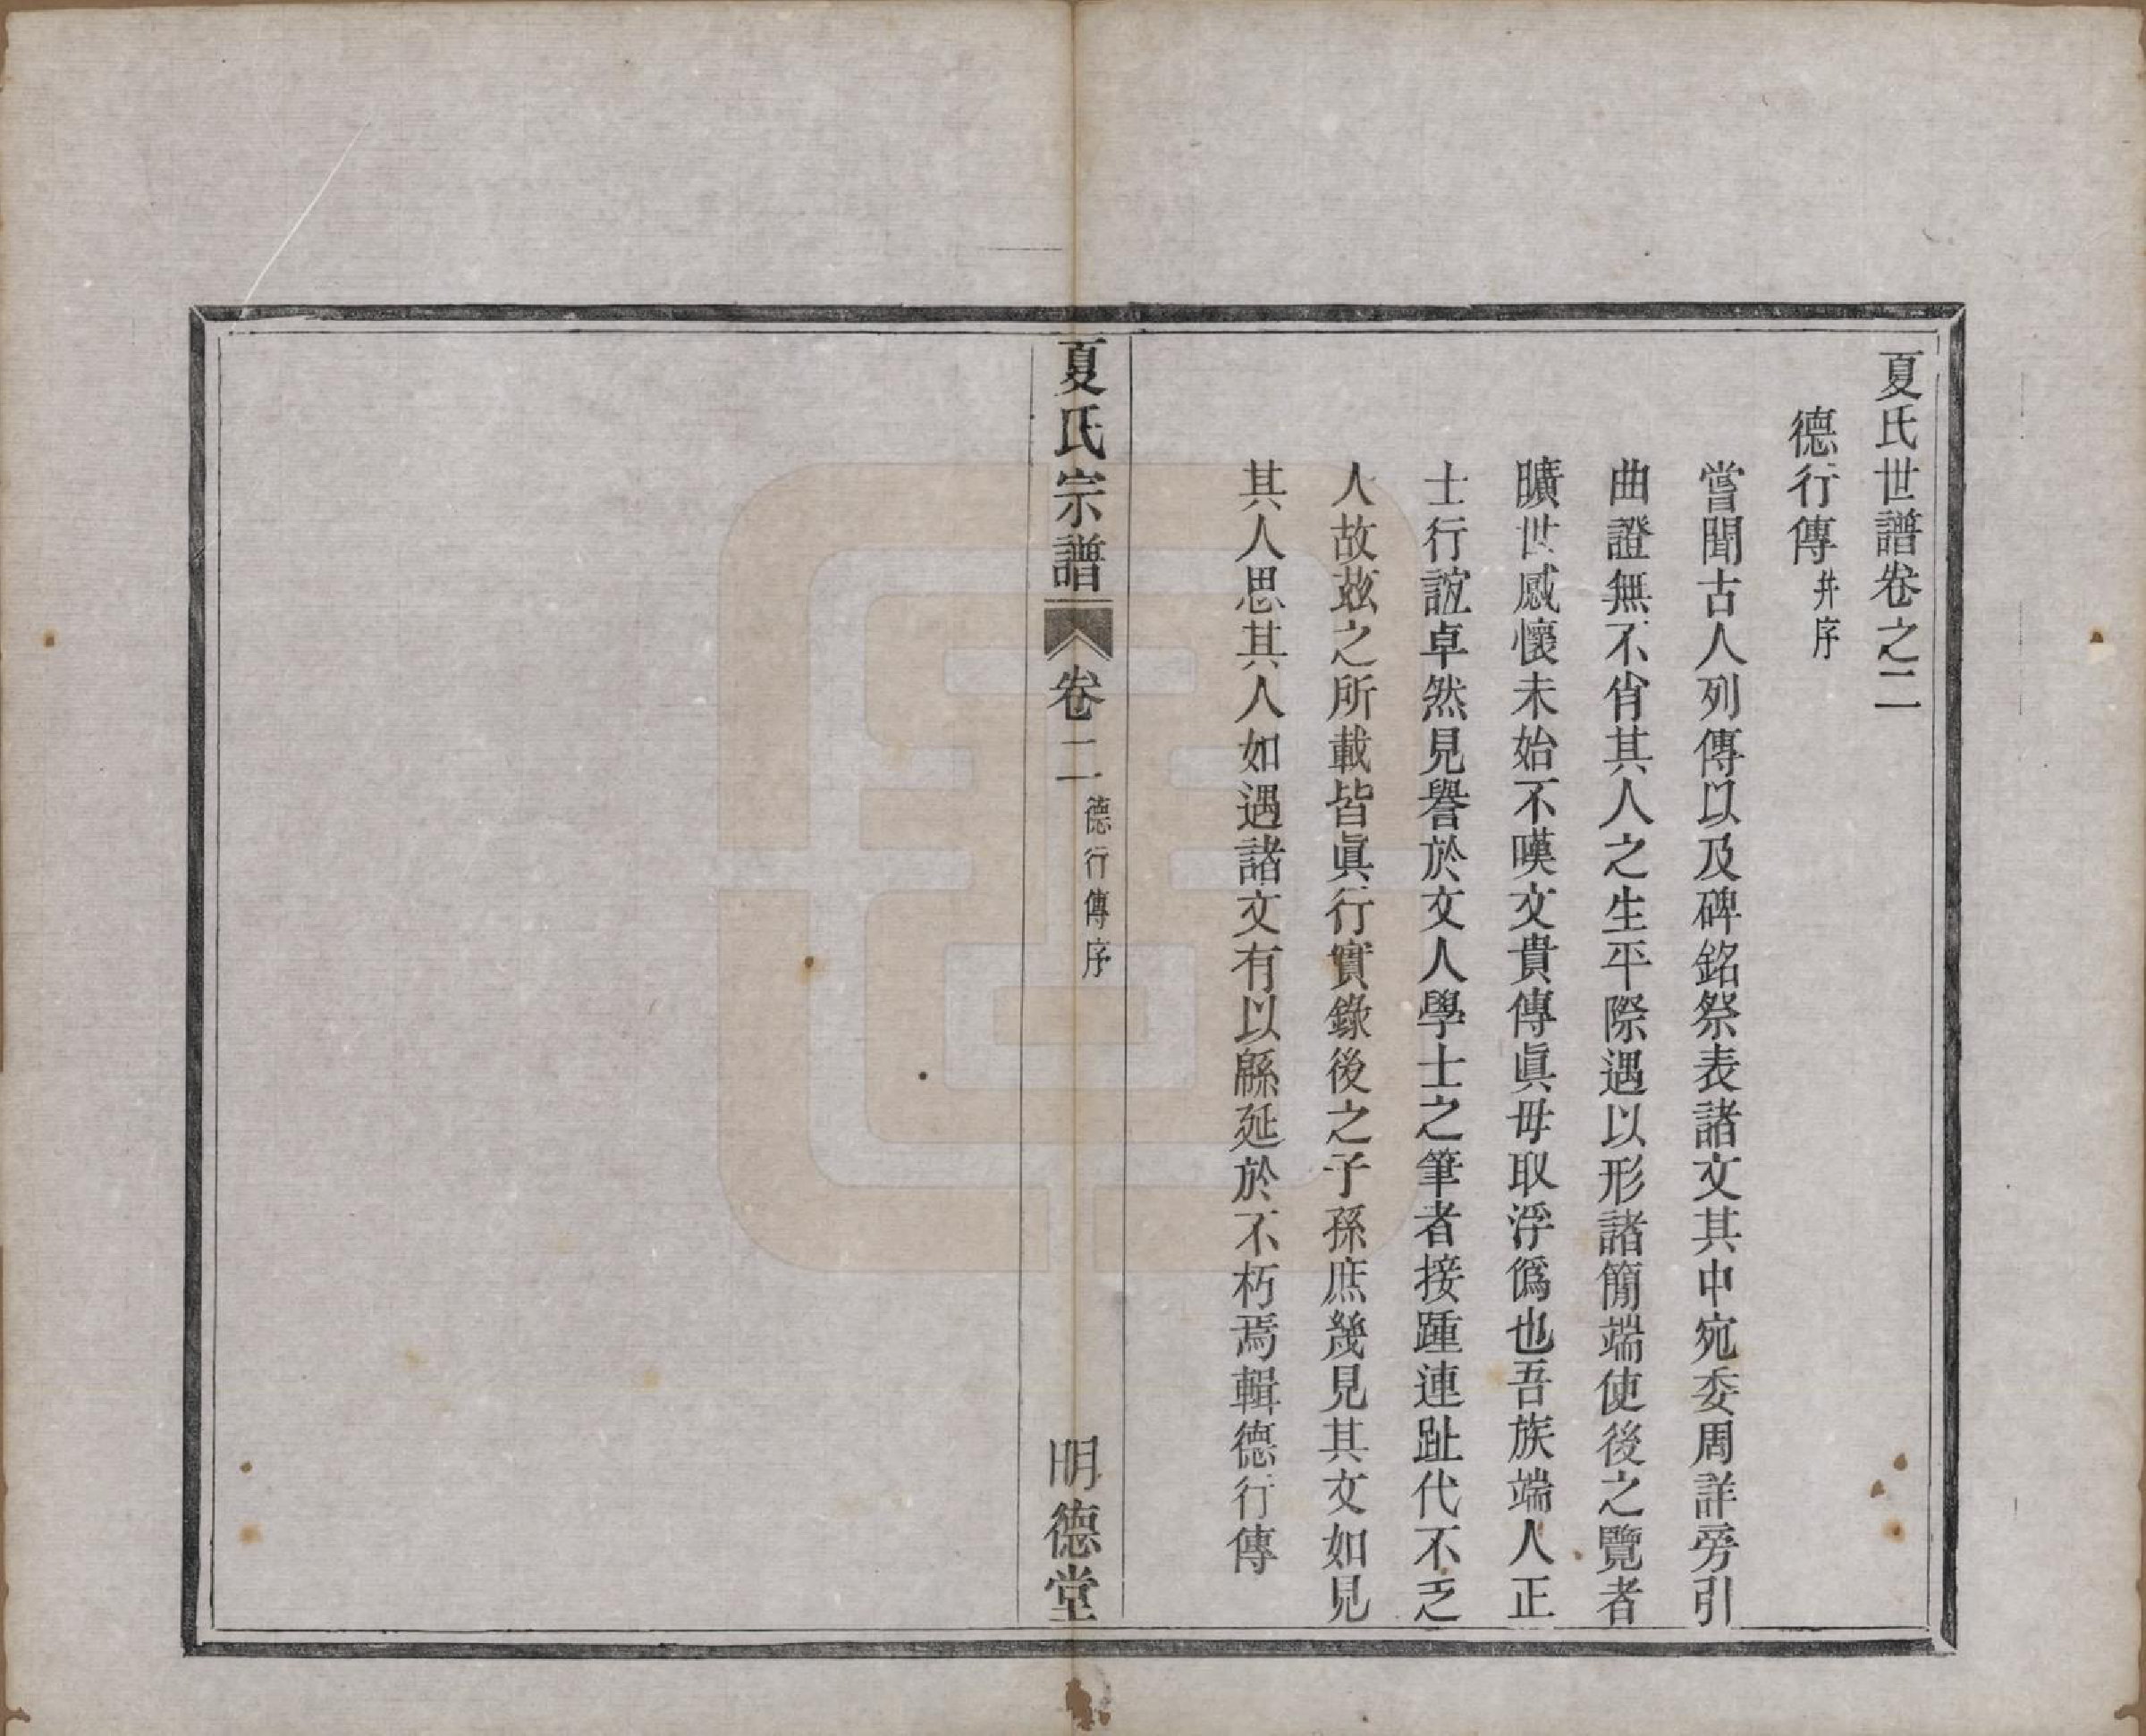 夏氏世譜卷之二
德行傳并序
嘗聞古人列傳以及碑銘祭表諸文其中宛委周詳旁引
曲證無不肖其人之生平際遇以形諸簡端使後之覽者
曠世感懷未始不嘆文貴傳眞毋取浮僞也吾族端人正
士行誼卓然見譽於文人學士之筆者接踵連趾代不乏
人故兹之所載皆眞行實錄後之子孫庶幾見其文如見
其人思其人如遇諸文有以緜延於不朽焉輯德行傳
夏氏宗譜 卷二 德行傳序 明德堂